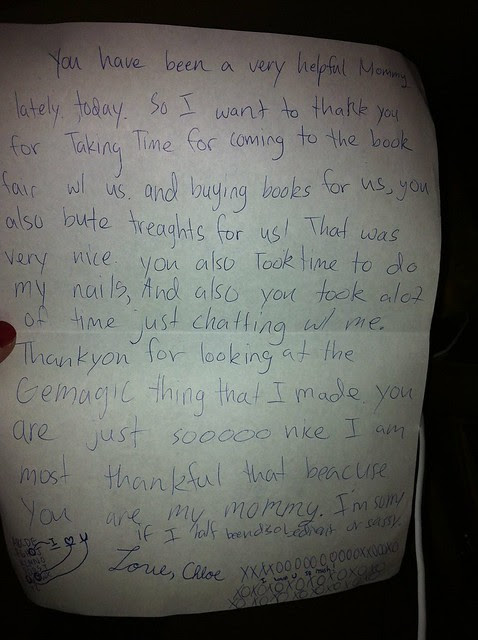 You have been a very helpful Mommy
lately today. So I want to thank you
for Taking Time for coming to the book
fair w/ us. and buying books for us, you
also bute treaghts for us! That was
very nice. you also Took time to do
my nails, And also you took alot
of time just chatting w/ me.
Thankyou for looking at the
Gemagic thing that I made you
are just sooooo nice I am
most thankful that beacuse
You are my mommy. I'm sorry
if I haff been or sassy.
I ♡ U
Love, Chloe